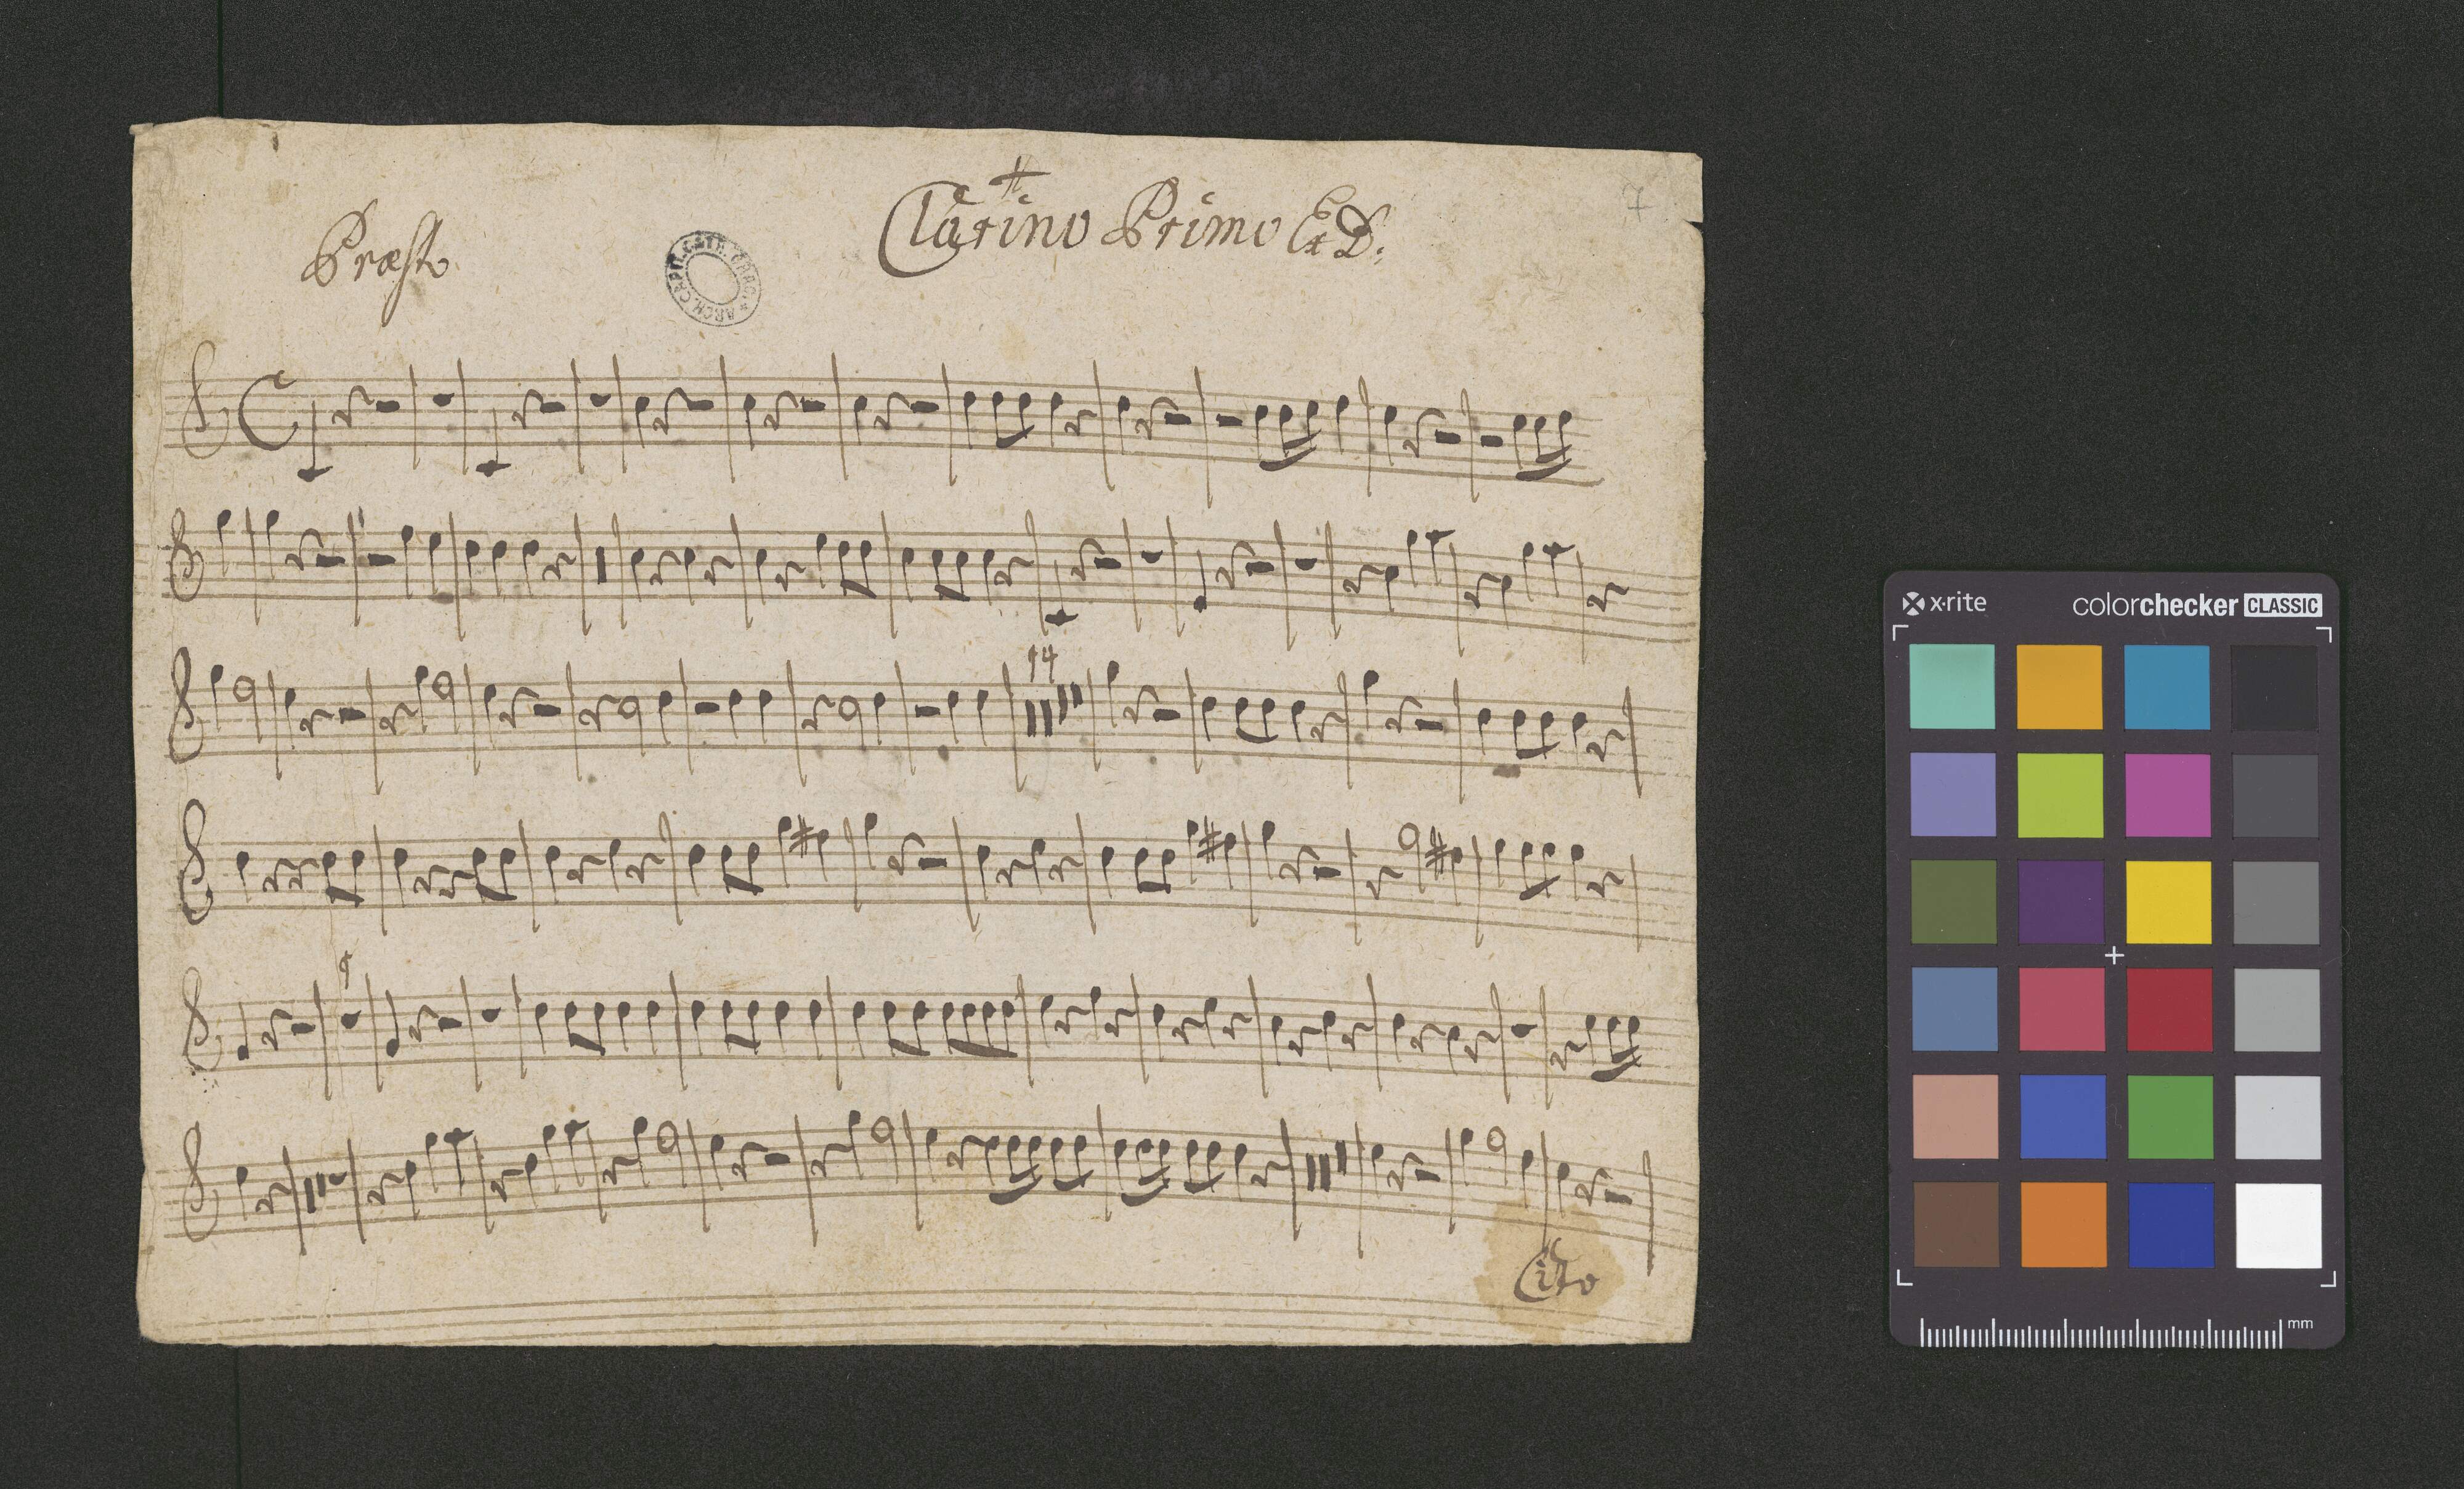 Clarino Primo Ex D:
7
Præsto
ARCH. CAPIT. CATH.
14
Cito
x·rite
colorchecker CLASSIC
mm